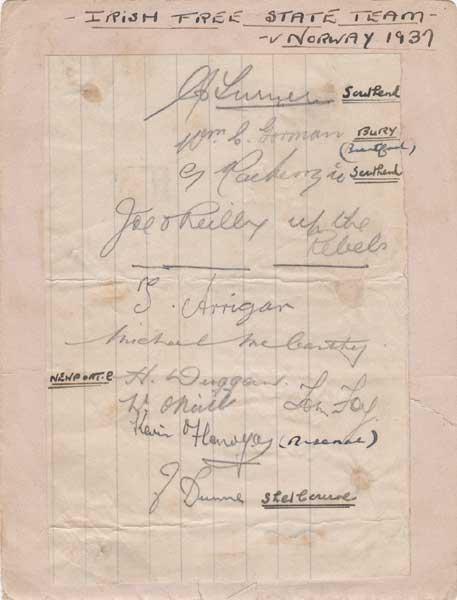 - IRISH FREE STATE TEAM -
- V NORWAY 1937
C Turner Southend
Wm. C. Gorman BURY
(Brentford)
G Mackenzie Southend
Joe O'Reilly up the
Rebels
T. Arrigan
Michael McCarthy.
NEWPORT.C H. Duggan.
W. O'Neill Tom Fox
Kevin O'Flanagan (Arsenal)
J Dunne Shelbourne